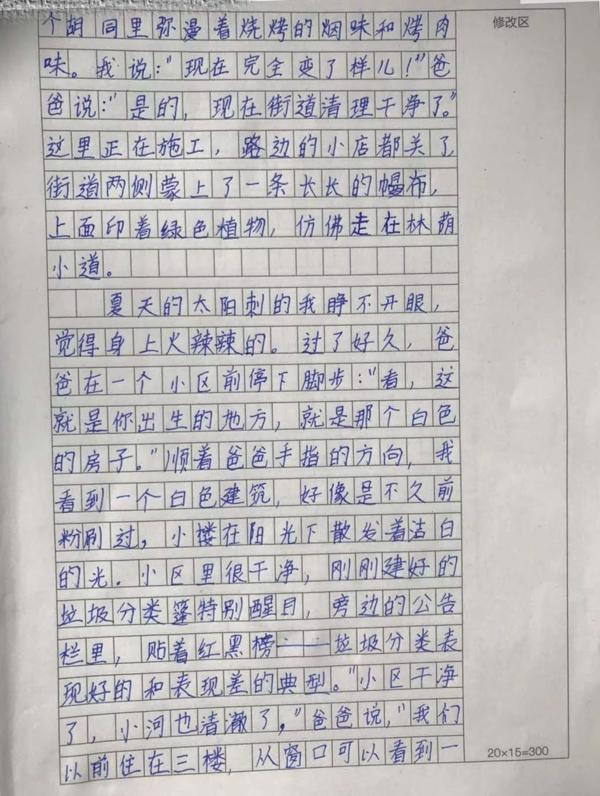 个胡同里弥漫着烧烤的烟味和烤肉
修改区
味。我说:"现在完全变了样儿!"爸
爸说:"是的,现在街道清理干净了。"
这里正在施工,路边的小店都关了
街道两侧蒙上了一条长长的幅布,
上面印着绿色植物,仿佛走在林荫
小道。
夏天的太阳刺的我睁不开眼,
觉得身上火辣辣的。过了好久,爸
爸在一个小区前停下脚步:"看,这
就是你出生的地方,就是那个白色
的房子。"顺着爸爸手指的方向,我
看到一个白色建筑,好像是不久前
粉刷过,小楼在阳光下散发着洁白
的光.小区里很干净,刚刚建好的
垃圾分类篷特别醒目,旁边的公告
栏里,贴着红黑榜——垃圾分类表
现好的和表现差的典型。"小区干净
了,小河也清澈了,"爸爸说,"我们
以前住在三楼,从窗口可以看到一
20×15=300